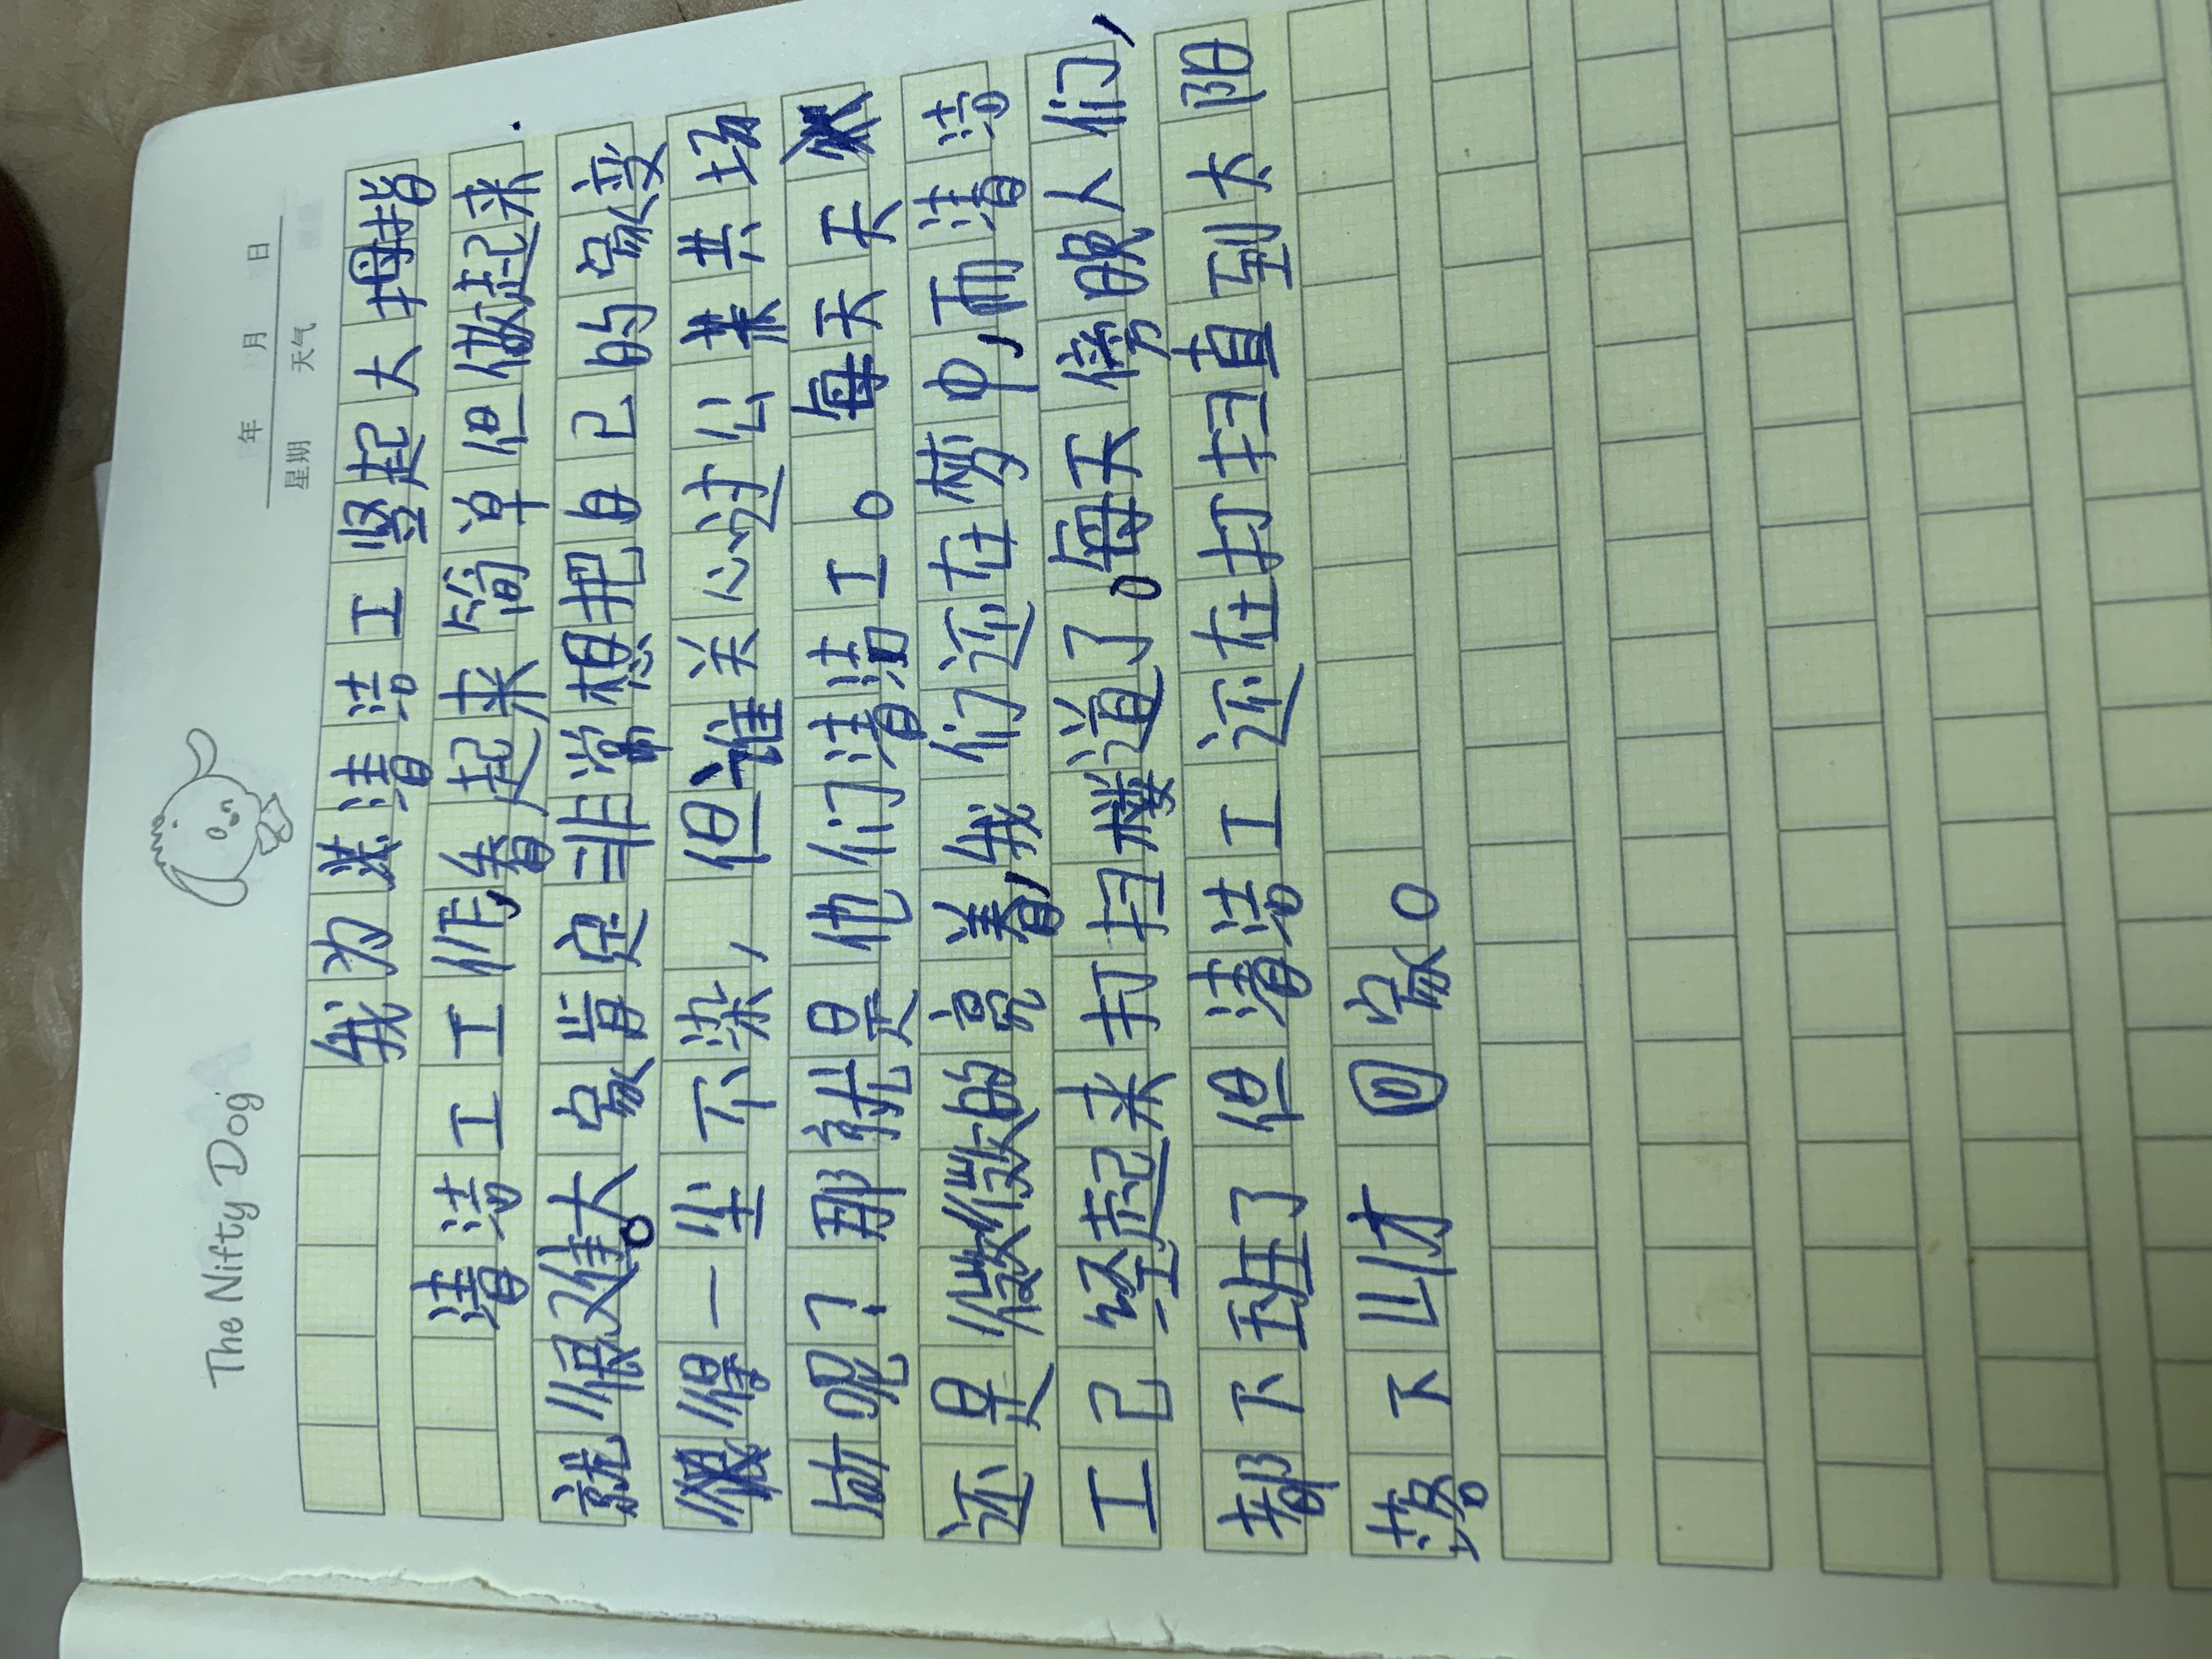 The Nifty Dog
年 月 日
星期 天气
我为某清洁工竖起大拇指
清洁工工作,看起来简单但做起来
就很难。大家肯定非常想把自己的家变
得一尘不染,但谁关心过公共场
所呢?那就是他们清洁工。每天天
还是微微的亮着,我们还在梦中,而清洁
工已经起来打扫楼道了。每天傍晚人们,
都下班了但清洁工还在打扫直到太阳
落下山才回家。